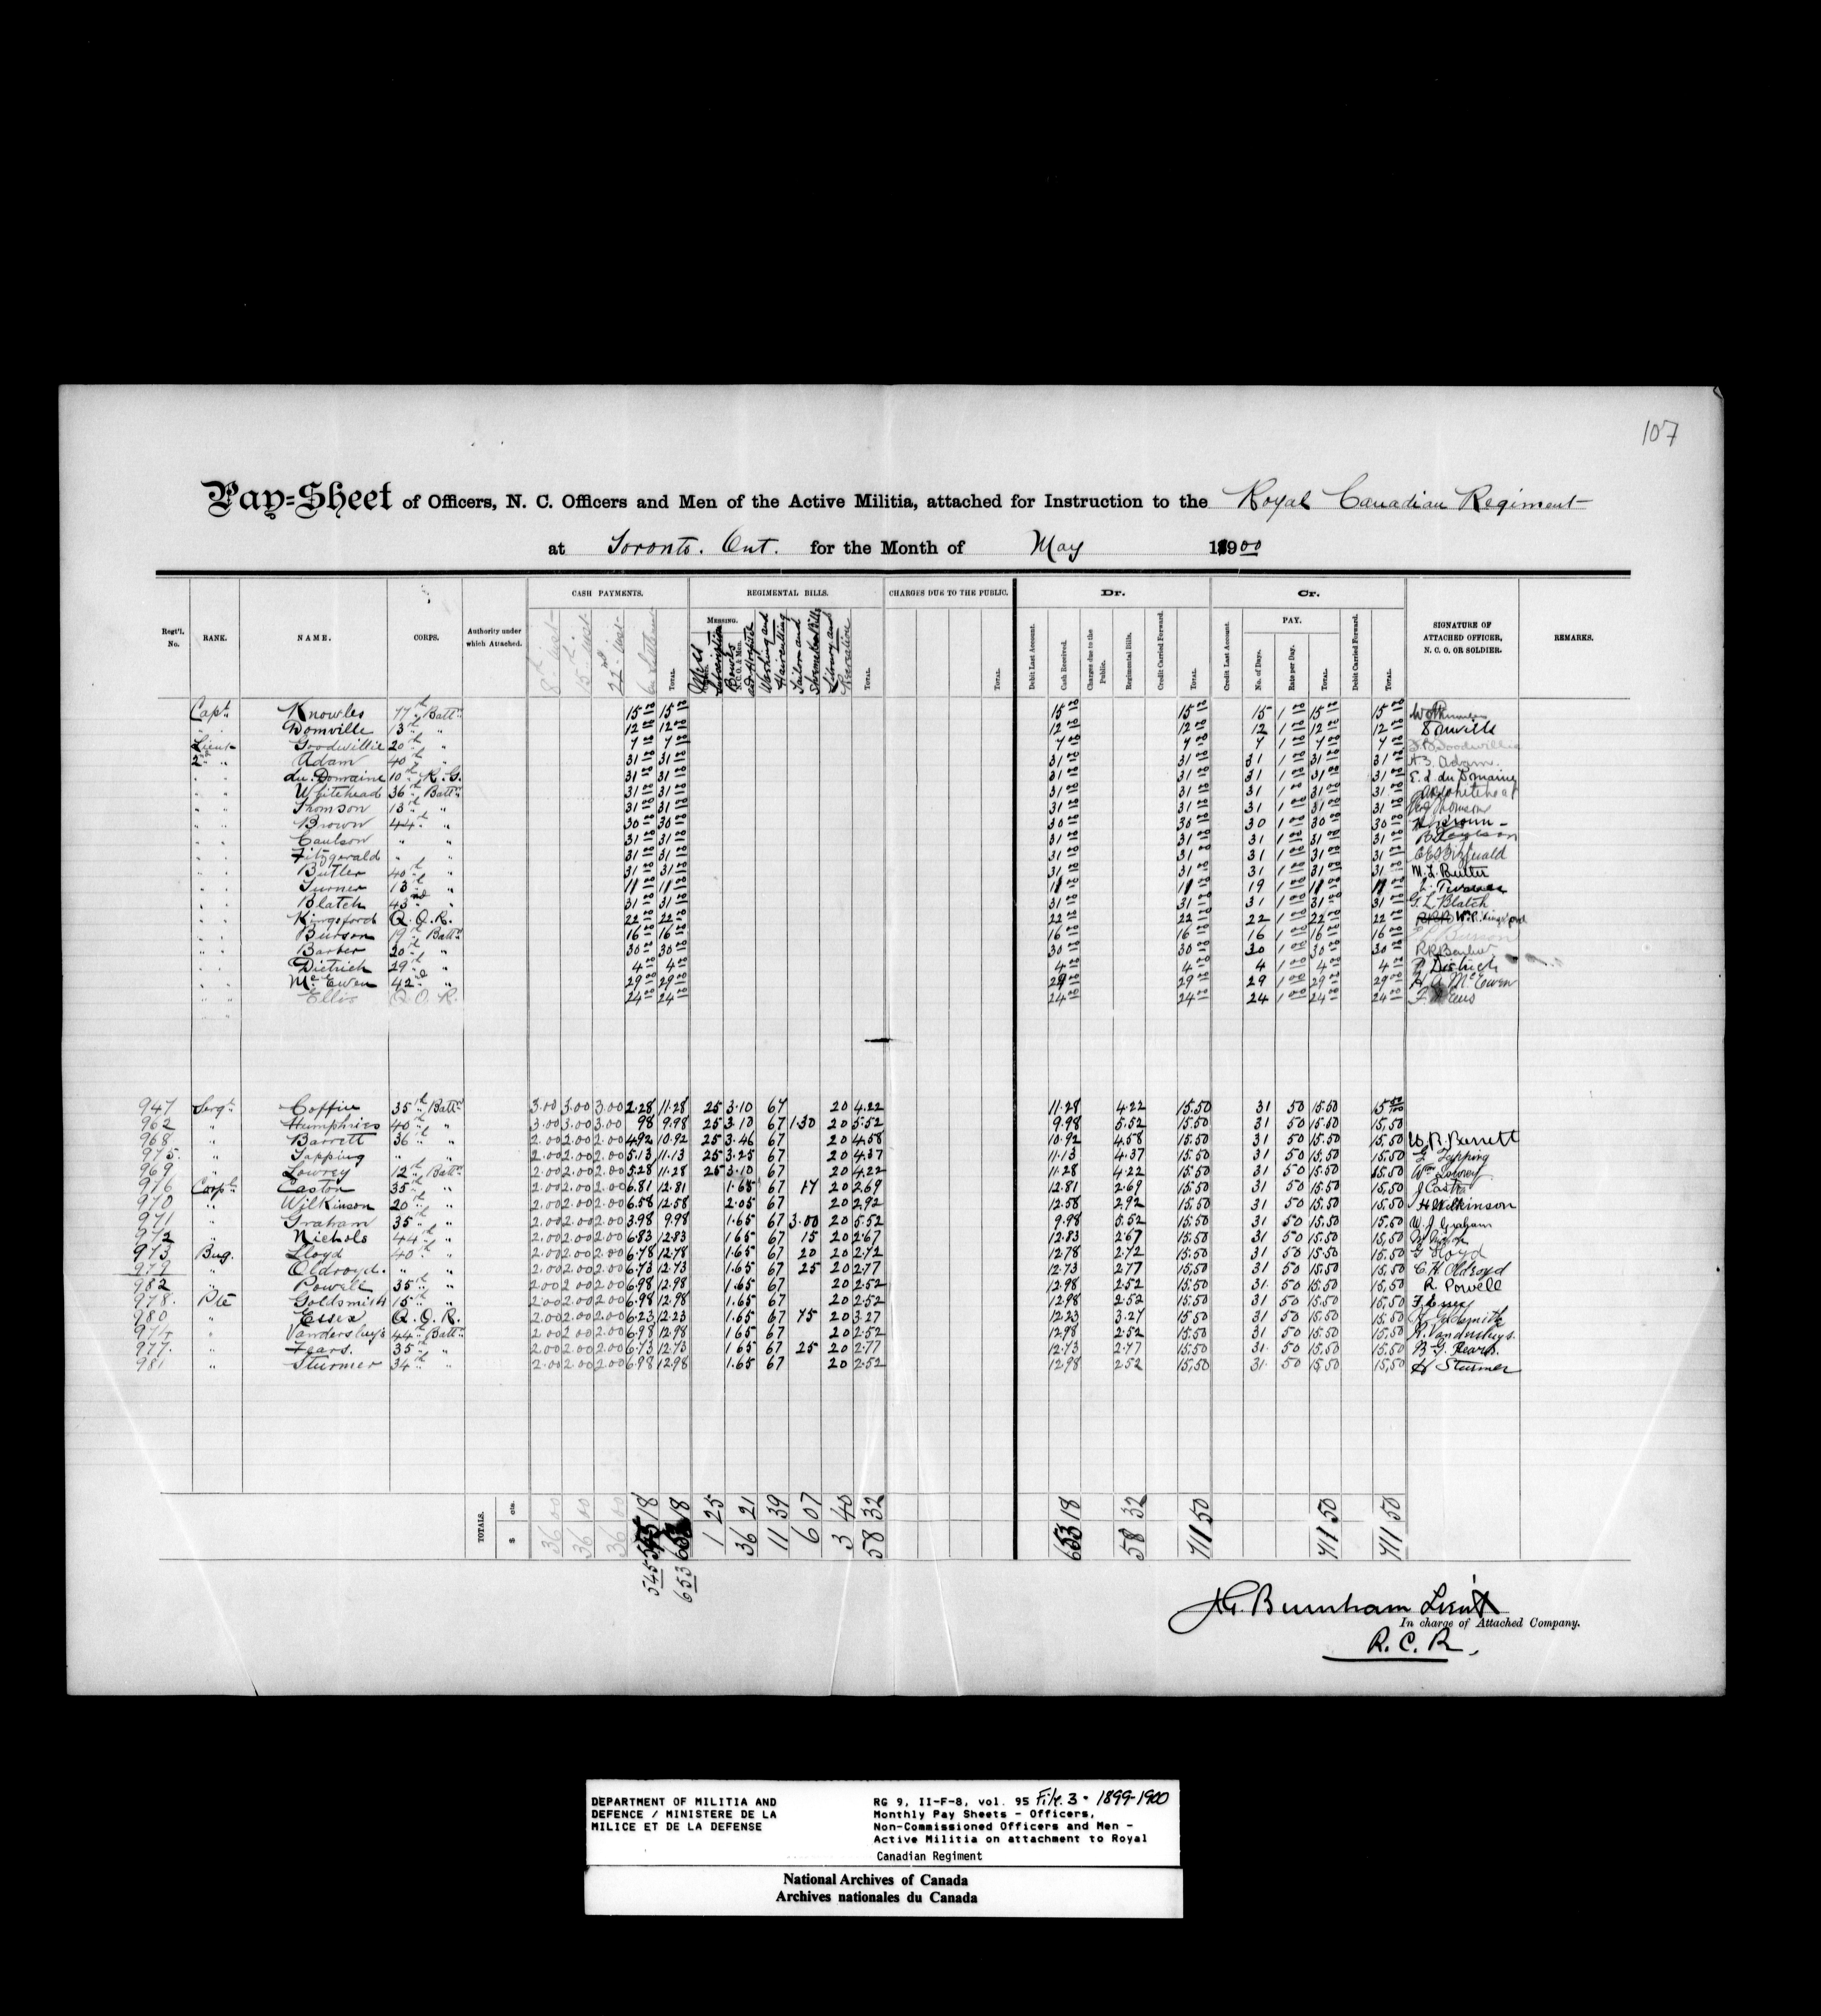 107
Pay=Sheet of Officers, N. C. Officers and Men of the Active Militia, attached for Instruction to the Royal Canadian Regiment
at Toronto. Ont. for the Month of May 1900
CASH PAYMENTS. REGIMENTAL BILLS. CHARGES DUE TO THE PUBLIC. Dr. Cr.
Regt'l. No. RANK. NAME. CORPS. Authority under which Attached. 8th inst 15th inst 22nd inst TOTAL. MESSING. N. C. O. & Men. Washing and Haircutting Tailor and Shoemaker Bills Library and Recreation TOTAL. TOTAL. Debit Last Account. Cash Received. Charges due to the Public. Regimental Bills. Credit Carried Forward. TOTAL. Credit Last Account. PAY. No. of Days. Rate per Day. TOTAL. Debit Carried Forward. TOTAL. SIGNATURE OF ATTACHED OFFICER, N. C. O. OR SOLDIER. REMARKS.
Capt. Knowles 77th Battn 15 00 15 00 15 00 15 00 15 1 00 15 00 15 00
" Domville 13th " 12 00 12 00 12 00 12 00 12 1 00 12 00 12 00 Domville
Lieut Goodwillie 20th " 7 00 7 00 7 00 7 00 7 1 00 7 00 7 00 Goodwillie
2nd " Adam 40th " 31 00 31 00 31 00 31 00 31 1 00 31 00 31 00 A. Z. Adam.
" " du. Domaine 10th R. G. 31 00 31 00 31 00 31 00 31 1 00 31 00 31 00 du Domaine
" " Whitehead 36th Battn 31 00 31 00 31 00 31 00 31 1 00 31 00 31 00 Whitehead
" " Thomson 13th " 31 00 31 00 31 00 31 00 31 1 00 31 00 31 00 Thomson
" " Brown 44th " 30 00 30 00 30 00 30 00 30 1 00 30 00 30 00 Brown
" " Caulson " " 31 00 31 00 31 00 31 00 31 1 00 31 00 31 00
" " Fitzgerald " " 31 00 31 00 31 00 31 00 31 1 00 31 00 31 00 Fitzgerald
" " Butler 40th " 31 00 31 00 31 00 31 00 31 1 00 31 00 31 00 M. L. Butler
" " Turner 13th " 11 00 11 00 11 00 11 00 19 1 00 11 00 11 00 Turner
" " Blatch 43rd " 31 00 31 00 31 00 31 00 31 1 00 31 00 31 00 G. L. Blatch
" " Kingsford Q. O. R. 22 00 22 00 22 00 22 00 22 1 00 22 00 22 00 Kingsford
" " Burson 19th Battn 16 00 16 00 16 00 16 00 16 1 00 16 00 16 00 Burson
" " Barber 20th " 30 00 30 00 30 00 30 00 30 1 00 30 00 30 00 R. R. Barber
" " Dietrich 29th " 4 00 4 00 4 00 4 00 4 1 00 4 00 4 00 Dietrich
" " McEwen 42nd " 29 00 29 00 29 00 29 00 29 1 00 29 00 29 00 McEwen
" " Ellis Q. O. R. 24 00 24 00 24 00 24 00 24 1 00 24 00 24 00
947 Sergt. Coffin 35th Battn 3.00 3.00 3.00 2.28 11.28 25 3.10 67 20 4.22 11.28 4.22 15.50 31 50 15.50 15 50
962 " Humphries 40th " 3.00 3.00 3.00 98 9.98 25 3.10 67 1.30 20 5.52 9.98 5.52 15.50 31 50 15.50 15.50
968 " Barrett 36th " 2.00 2.00 2.00 4.92 10.92 25 3.46 67 20 4.58 10.92 4.58 15.50 31 50 15.50 15.50 W. R. Barrett
975. " Topping " " 2.00 2.00 2.00 5.13 11.13 25 3.25 67 20 4.37 11.13 4.37 15.50 31 50 15.50 15.50 G Topping
969 " Lowrey 12th Battn 2.00 2.00 2.00 5.28 11.28 25 3.10 67 20 4.22 11.28 4.22 15.50 31 50 15.50 15.50 Wm Lowrey
976 Corpl. Easton 35th " 2.00 2.00 2.00 6.81 12.81 1.65 67 17 20 2.69 12.81 2.69 15.50 31 50 15.50 15.50
970 " Wilkinson 20th " 2.00 2.00 2.00 6.58 12.58 2.05 67 20 2.92 12.58 2.92 15.50 31 50 15.50 15.50 H Wilkinson
971 " Graham 35th " 2.00 2.00 2.00 3.98 9.98 1.65 67 3.00 20 5.52 9.98 5.52 15.50 31 50 15.50 15.50 W. J. Graham
972 " Nichols 44th " 2.00 2.00 2.00 6.83 12.83 1.65 67 15 20 2.67 12.83 2.67 15.50 31 50 15.50 15.50
973 Bug. Lloyd 40th " 2.00 2.00 2.00 6.78 12.78 1.65 67 20 20 2.72 12.78 2.72 15.50 31 50 15.50 15.50 G Lloyd
979 " Oldroyd. " " 2.00 2.00 2.00 6.73 12.73 1.65 67 25 20 2.77 12.73 2.77 15.50 31 50 15.50 15.50 C. H. Oldroyd
982 " Powell 35th " 2.00 2.00 2.00 6.98 12.98 1.65 67 20 2.52 12.98 2.52 15.50 31 50 15.50 15.50 R Powell
978. Pte Goldsmith 15th " 2.00 2.00 2.00 6.98 12.98 1.65 67 20 2.52 12.98 2.52 15.50 31 50 15.50 15.50 F. Essex
980 " Essex Q. O. R. 2.00 2.00 2.00 6.23 12.23 1.65 67 75 20 3.27 12.23 3.27 15.50 31 50 15.50 15.50 Goldsmith
974 " Vandersluys 44th Battn 2.00 2.00 2.00 6.98 12.98 1.65 67 20 2.52 12.98 2.52 15.50 31 50 15.50 15.50 Vandersluys.
977. " Fears. 35th " 2.00 2.00 2.00 6.73 12.73 1.65 67 25 20 2.77 12.73 2.77 15.50 31 50 15.50 15.50 B. G. Fears.
981 " Sturmer 34th " 2.00 2.00 2.00 6.98 12.98 1.65 67 20 2.52 12.98 2.52 15.50 31 50 15.50 15.50 H Sturmer
TOTALS. $ cts. 36 00 36 00 36 00 545 18 653 18 1 25 36 21 11 39 6 07 3 40 58 32 653 18 58 32 711 50 711 50 711 50
545 653
Burnham Lieut
In charge of Attached Company.
R. C. R.
DEPARTMENT OF MILITIA AND
DEFENCE / MINISTERE DE LA
MILICE ET DE LA DEFENSE
RG 9, II-F-8, vol. 95 File. 3 - 1899-1900
Monthly Pay Sheets - Officers,
Non-Commissioned Officers and Men -
Active Militia on attachment to Royal
Canadian Regiment
National Archives of Canada
Archives nationales du Canada